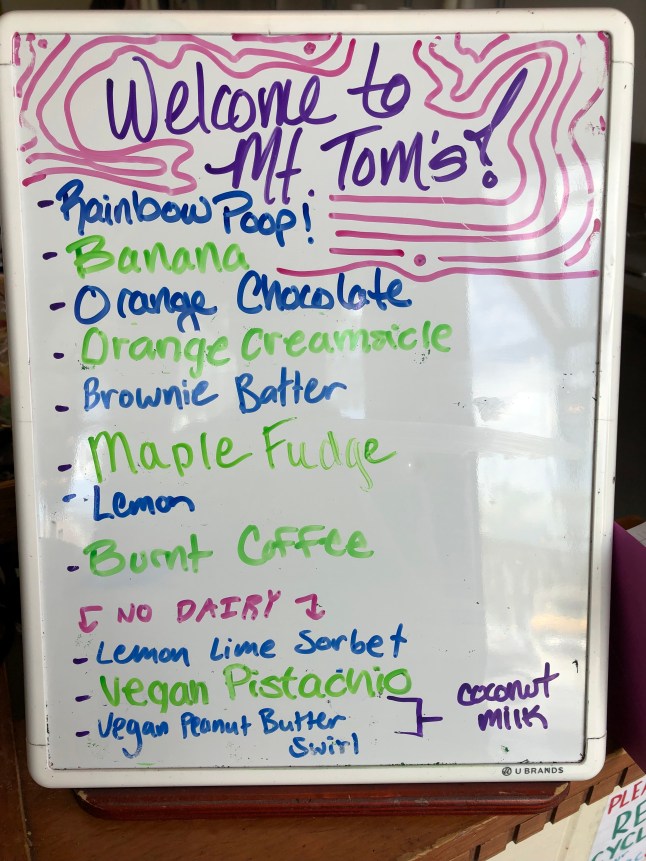 Welcome to
Mt. Tom's!
- Rainbow Poop!
- Banana
- Orange Chocolate
- Orange Creamsicle
- Brownie Batter
- Maple Fudge
- Lemon
- Burnt Coffee
NO DAIRY
- Lemon Lime Sorbet
- Vegan Pistachio
- Vegan Peanut Butter
Swirl
coconut
milk
U BRANDS
PLEA
RE
CYCL